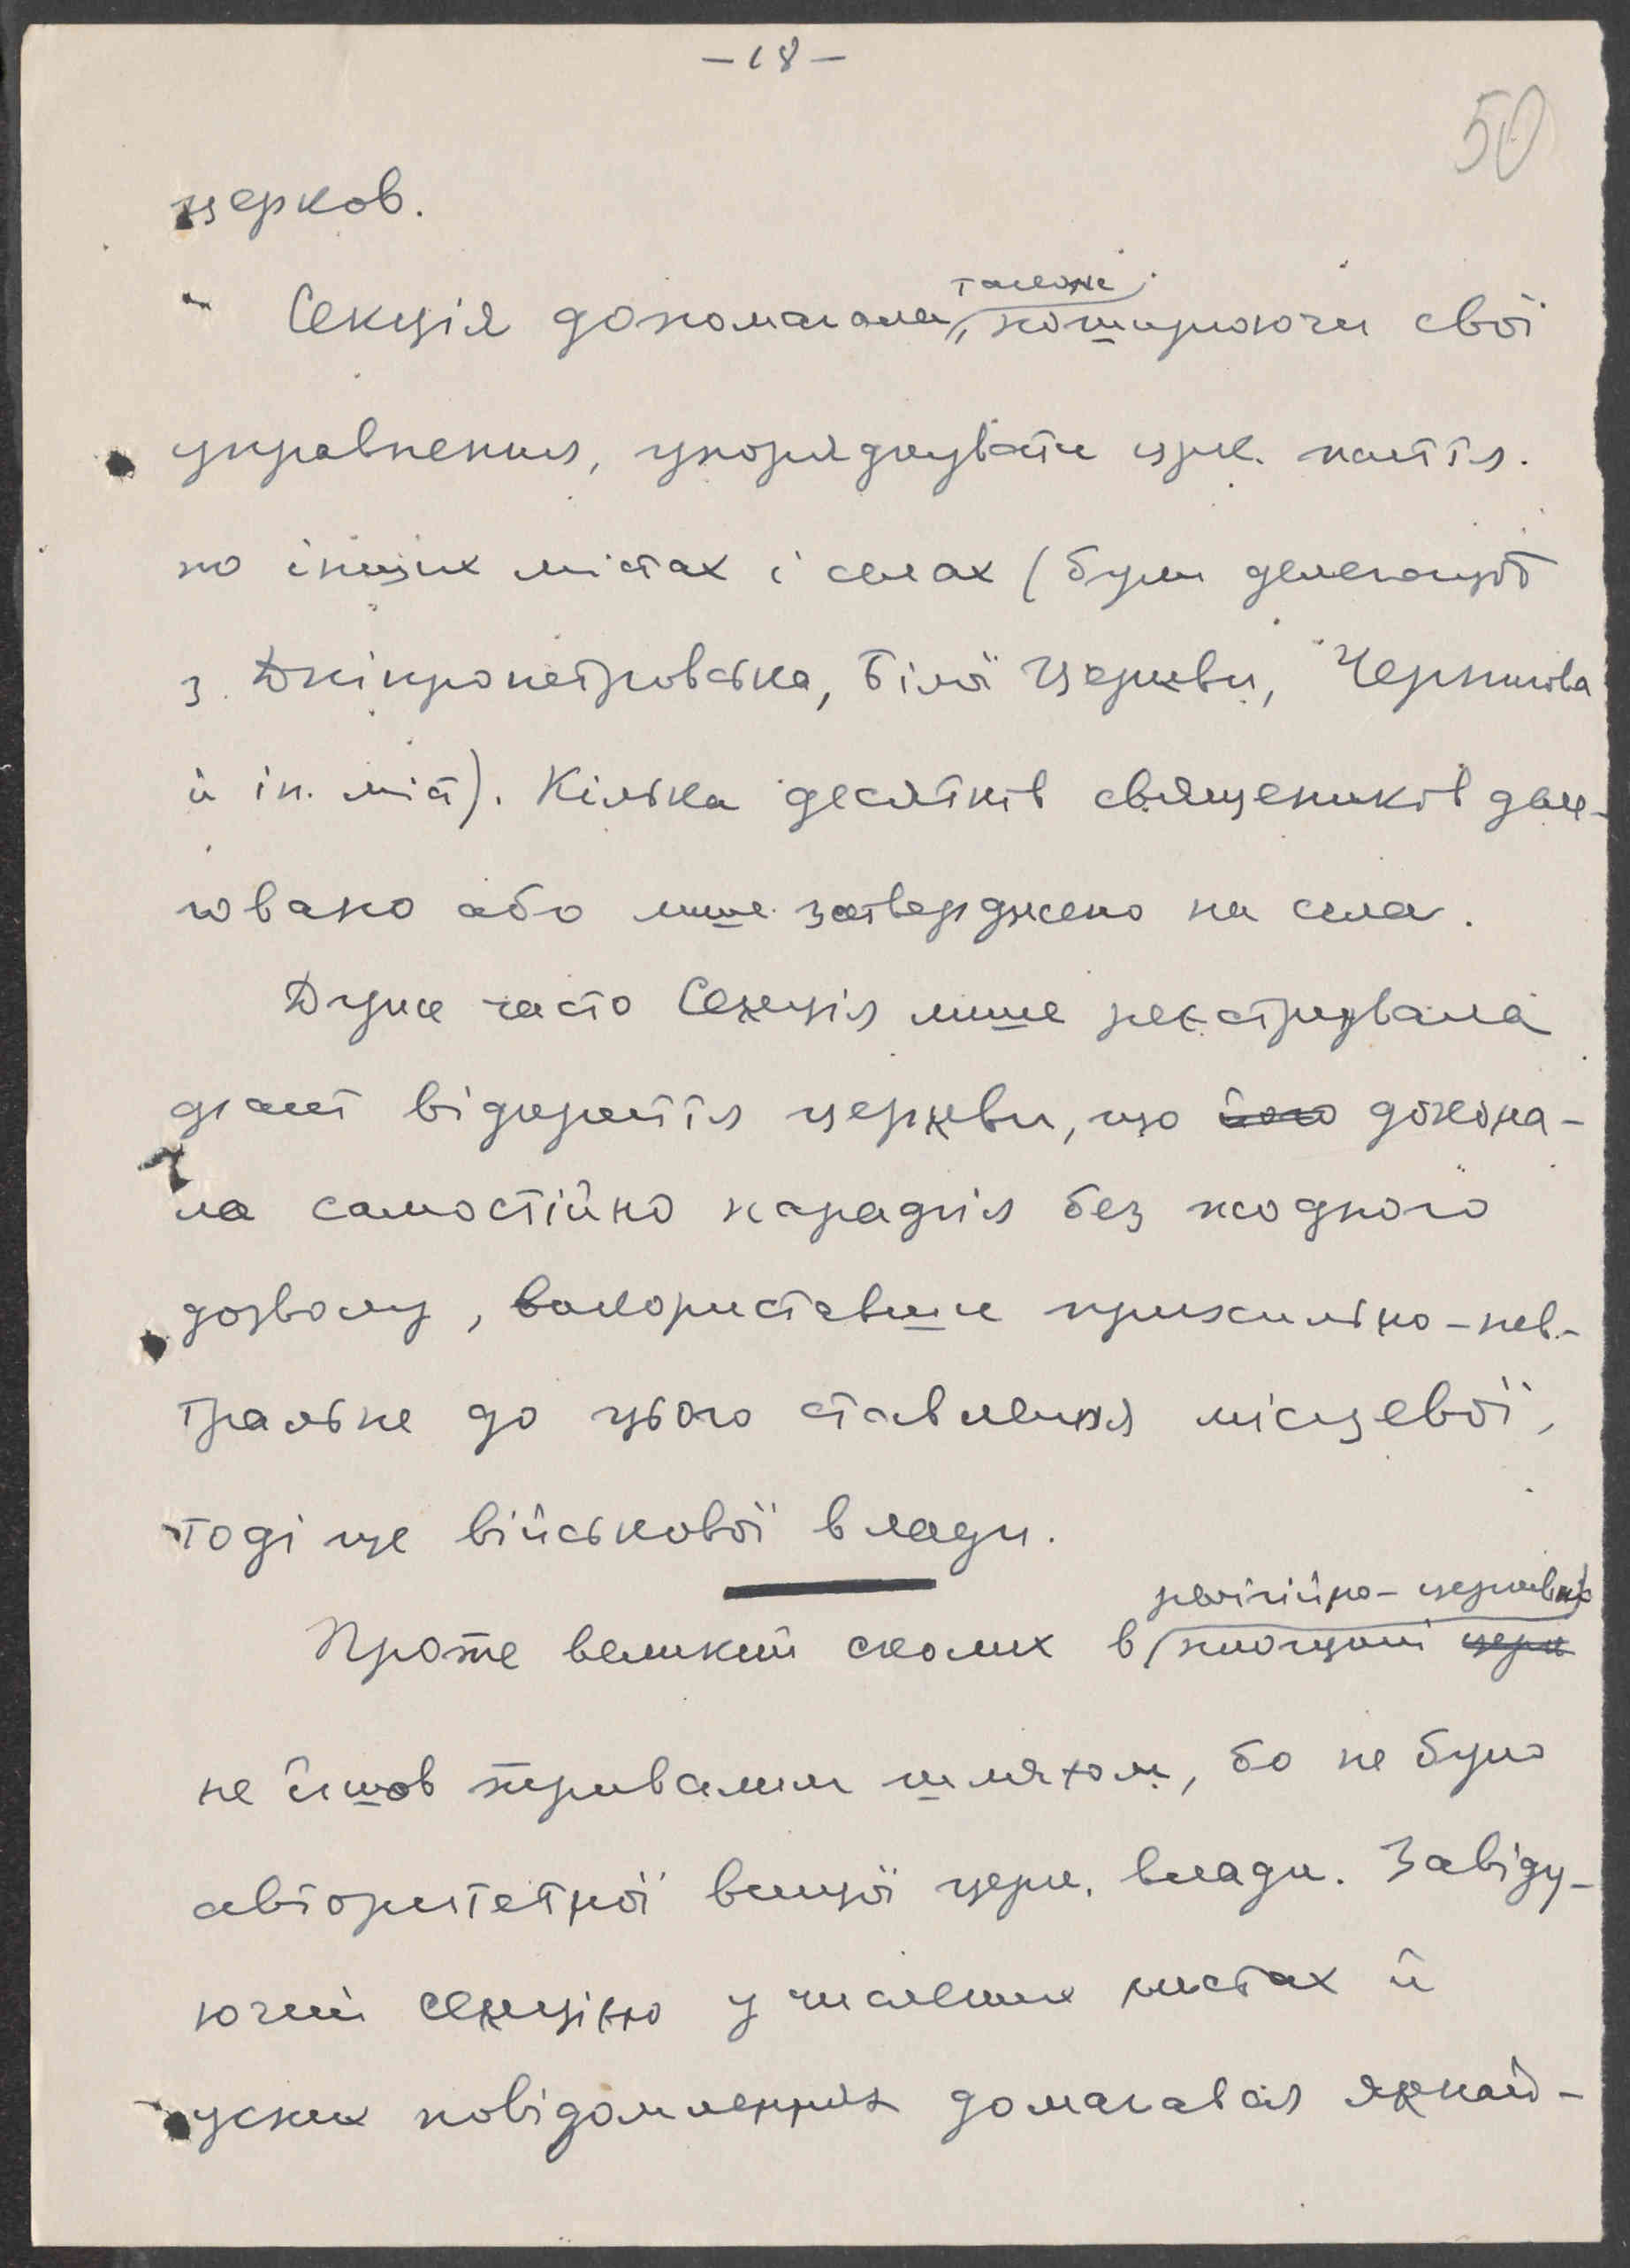 — 18 —
50
церков.
також
Секція допомагала, поширюючи свої
управнення, упорядкувати црк. життя
по інших містах і селах (були делегації
з Дніпропетровська, Білої Церкви, Чернигова
й ін. міст). Кілька десятків священиків деле-
ювано або лише затверджено на села.
Дуже часто Секція лише реєструвала
факт відкриття церкви, що його докона-
ла самостійно парафія без жодного
дозволу, використавши прихильно-нев-
тральне до цього ставлення місцевої,
тоді ще військової влади.
релігійно-церковній
Проте великий сполох в площині церк
не йшов тривалим шляхом, бо не було
авторитетної вищої церк. влади. Завіду-
ючий секцією у численних листах й
усних повідомленнях домагався якнай-